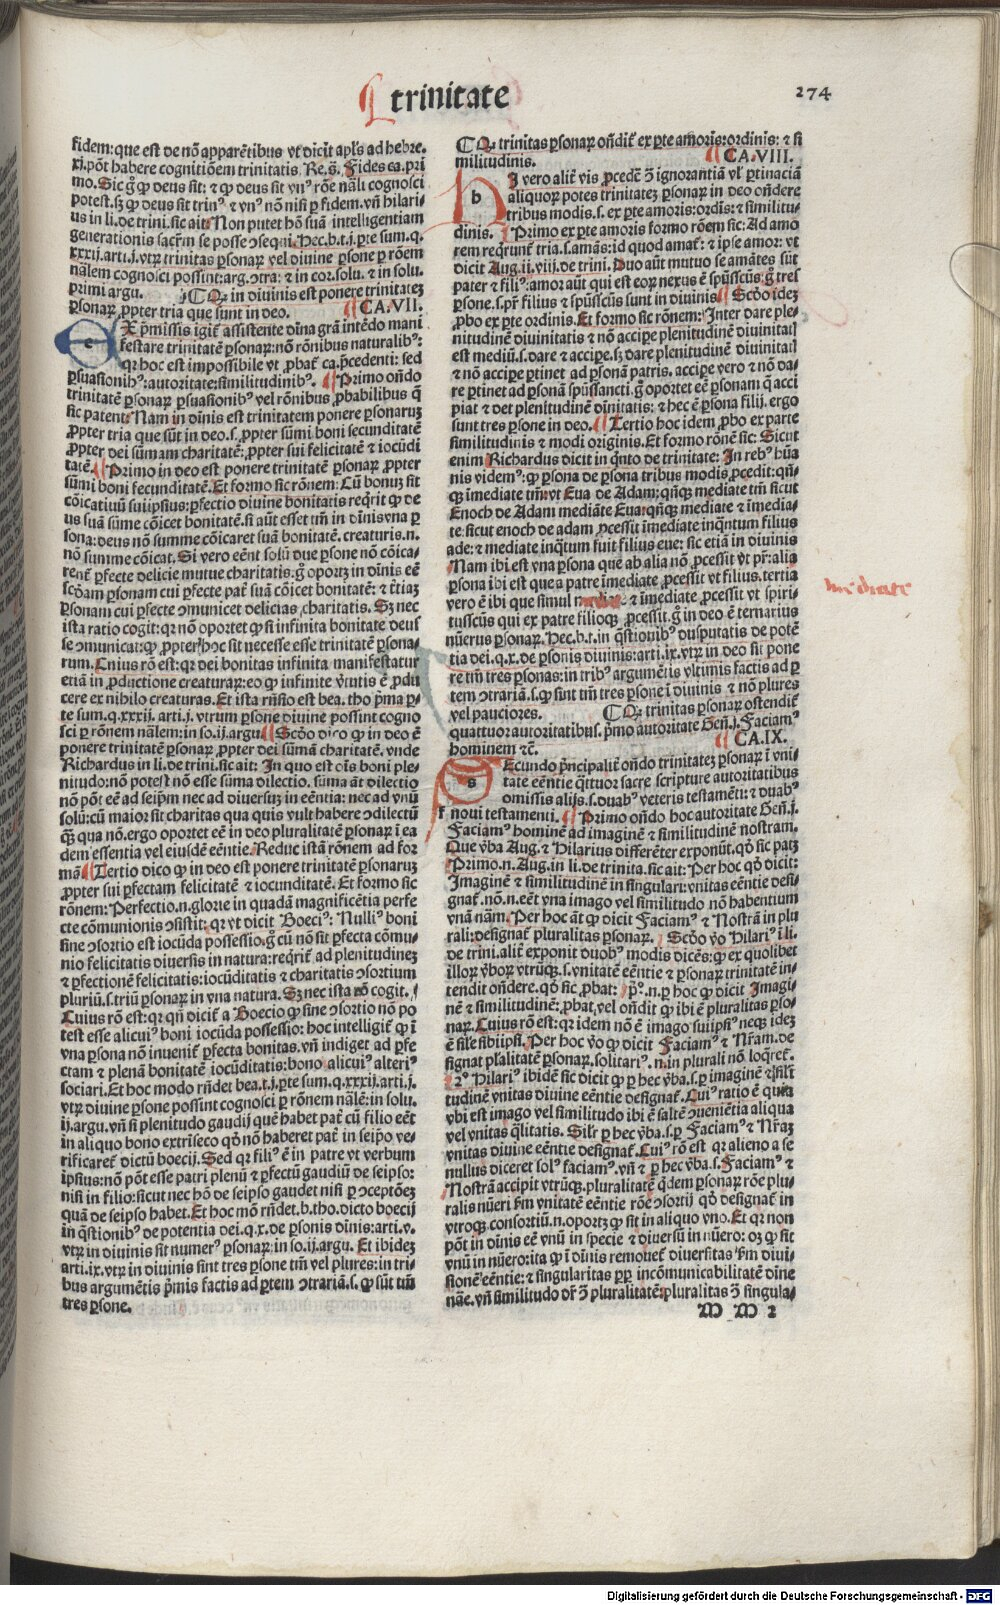 trinitate
274
fidem: que est de nõ apparẽtibus vt dicit apl's ad hebre.
xi. põt habere cognitiõem trinitatis. Re. g̃. Fides ca. pri
mo. Sic g̃ ꝙ deus sit: ⁊ ꝙ deus sit vnꝰ rõe nãli cognosci
potest. sꝫ ꝙ deus sit trinꝰ ⁊ vnꝰ nõ nisi ꝑ fidem. vñ hilari⸗
us in li. de trini. sic ait: Non putet hõ suã intelligentiam
generationis sacrm̃ se posse ↄsequi. Hec. b. t. j. ꝑte sum. q.
xxxij. arti. j. vtrꝝ trinitas ꝑsonaꝝ vel diuine ꝑsone ꝑ rõem
nãlem cognosci possint: arg. ↄtra: ⁊ in cor. solu. ⁊ in solu.
primi argu. ¶ Qꝙ in diuinis est ponere trinitateꝫ
ꝑsonaꝝ ꝓpter tria que sunt in deo. ¶ CA. VII.
e
EX p̃missis igit̃ assistente diĩna grã intẽdo mani
festare trinitatẽ ꝑsonaꝝ: nõ rõnibus naturalibꝰ:
qꝛ hoc est impossibile vt ꝓbat̃ ca. p̃cedenti: sed
ꝑsuasionibꝰ: autoritate: similitudinibꝰ. ¶ Primo oñdo
trinitatẽ ꝑsonaꝝ ꝑsuasionibꝰ vel rõnibus ꝓbabilibus q̃
sic patent: Nam in diĩnis est trinitatem ponere ꝑsonaruꝫ
ꝓpter tria que sũt in deo. s. ꝓpter sũmi boni fecunditatẽ
ꝓpter dei sũmam charitatẽ: ꝓpter sui felicitatẽ ⁊ iocũdi
tatẽ. ¶ Primo in deo est ponere trinitatẽ ꝑsonaꝝ ꝓpter
sũmi boni fecunditatẽ. Et formo sic rõnem: Cũ bonuꝫ sit
cõicatiuũ suiipsius: ꝑfectio diuine bonitatis req̃rit ꝙ de
us suã sũme cõicet bonitatẽ. si aũt esset tm̃ in diĩnis vna ꝑ
sona: deus nõ summe cõicaret suã bonitatẽ. creaturis. n.
nõ summe cõicat. Si vero eẽnt solũ due ꝑsone nõ cõica⸗
rent̃ ꝑfecte delicie mutue charitatis. g̃ oportꝫ in diĩnis eẽ
scd̃am ꝑsonam cui ꝑfecte pat̃ suã cõicet bonitatẽ: ⁊ t̃tiaꝫ
ꝑsonam cui ꝑfecte ↄmunicet delicias charitatis. Sꝫ nec
ista ratio cogit: qꝛ nõ oportet ꝙ si infinita bonitate deus
se ↄmunicat: ꝙ ꝓpter hoc sit necesse esse trinitatẽ ꝑsona⸗
rum. Cuius rõ est: qꝛ dei bonitas infinita manifestatur
etiã in ꝓductione creaturaꝝ: eo ꝙ infinite v̓tutis ẽ ꝓdu
cere ex nihilo creaturas. Et ista rñsio est bea. tho p̃ma ꝑ⸗
te sum. q. xxxij. arti. j. vtrum ꝑsone diuine possint cogno
sci ꝑ rõnem nãlem: in so. ij. argu. ¶ Scd̃o dico ꝙ in deo ẽ
ponere trinitatẽ ꝑsonaꝝ ꝓpter dei sũmã charitatẽ. vnde
Richardus in li. de trini. sic ait: In quo est oĩs boni ple⸗
nitudo: nõ potest nõ esse sũma dilectio. sũma aũt dilectio
nõ põt eẽ ad seip̃m nec ad diuersuꝫ in eẽntia: nec ad vnũ
solũ: cũ maior sit charitas qua quis vult habere ↄdilectũ
q̃ꝫ qua nõ. ergo oportet eẽ in deo pluralitatẽ ꝑsonaꝝ ĩ ea
dem essentia vel eiusdẽ eẽntie. Reduc istã rõnem ad for
mã. ¶ Tertio dico ꝙ in deo est ponere trinitatẽ ꝑsonaruꝫ
ꝓpter sui ꝑfectam felicitatẽ ⁊ iocunditatẽ. Et formo sic
rõnem: Perfectio. n. glorie in quadã magnificẽtia perfe
cte cõmunionis ↄsistit: qꝛ vt dicit Boeciꝰ: Nulliꝰ boni
sine ↄsortio est iocũda possessio. g̃ cũ nõ sit ꝑfecta cõmu⸗
nio felicitatis diuersis in natura: req̃rit̃ ad plenitudineꝫ
⁊ ꝑfectionẽ felicitatis: iocũditatis ⁊ charitatis ↄsortium
pluriũ. s. triũ ꝑsonaꝝ in vna natura. Sꝫ nec ista rõ cogit.
Cuius rõ est: qꝛ qñ dicit̃ a Boecio ꝙ sine ↄsortio nõ po
test esse alicuiꝰ boni iocũda possessio: hoc intelligit̃ qñ ĩ
vna ꝑsona nõ inuenit̃ ꝑfecta bonitas. vñ indiget ad ꝑfe
ctam ⁊ plenã bonitatẽ iocũditatis: bono alicuiꝰ alteriꝰ
sociari. Et hoc modo rñdet bea. t. j. ꝑte sum. q. xxxij. arti. j.
vtꝝ diuine ꝑsone possint cognosci ꝑ rõnem nãlẽ: in solu.
ij. argu. vñ si plenitudo gaudij quẽ habet pat̃ cũ filio eẽt
in aliquo bono extriseco qd̃ nõ haberet pat̃ in seipo ve⸗
rificaret̃ dictũ boecij. Sed qꝛ filiꝰ ẽ in patre vt verbum
ipsius: nõ põt esse patri plenũ ⁊ ꝑfectũ gaudiũ de seipso:
nisi in filio: sicut nec hõ de seipso gaudet nisi ꝑ ↄceptõeꝫ
quã de seipso habet. Et hoc mõ rñdet. b. tho. dicto boecij
in q̃stionibꝰ de potentia dei. q. x. de ꝑsonis diĩnis: arti. v.
vtꝝ in diuinis sit numerꝰ ꝑsonaꝝ: in so. ij. argu. Et ibideꝫ
arti. ix. vtꝝ in diuinis sint tres ꝑsone tm̃ vel plures: in tri⸗
bus argumẽtis p̃mis factis ad ꝑtem ↄtrariã. s. ꝙ sũt tm̃
tres ꝑsone.
¶ Qꝙ trinitas ꝑsonaꝝ oñdit̃ ex ꝑte amoris: ordinis: ⁊ si
militudinis. ¶ CA. VIII.
h
HI vero alit̃ vis ꝓcedẽ ↄ̃ ignorantiã vl' ꝑtinaciã
aliquoꝝ potes trinitateꝫ ꝑsonaꝝ in deo oñdere
tribus modis. s. ex ꝑte amoris: ordĩs: ⁊ similitu⸗
dinis. ¶ Primo ex ꝑte amoris formo rõem sic: Ad amo
rem req̃runt̃ tria. s. amãs: id quod amat̃: ⁊ ipse amor: vt
dicit Aug. ii. viij. de trini. Duo aũt mutuo se amãtes sũt
pater ⁊ filiꝰ. amor aũt qui est eoꝝ nexus ẽ sp̃ũsscũs. g̃ tres
ꝑsone. s. pr̃ filius ⁊ sp̃ũsscũs sunt in diuinis. ¶ Scd̃o ideꝫ
ꝓbo ex ꝑte ordinis. Et formo sic rõnem: Inter dare ple⸗
nitudinẽ diuinitatis ⁊ nõ accipe plenitudinẽ diuinitatis
est mediũ. s. dare ⁊ accipe. sꝫ dare plenitudinẽ diuinitatis
⁊ nõ accipe ꝑtinet ad ꝑsonã patris. accipe vero ⁊ nõ da⸗
re ꝑtinet ad ꝑsonã sp̃ussancti. g̃ oportet eẽ ꝑsonam q̃ acci
piat ⁊ det plenitudinẽ diĩnitatis: ⁊ hec ẽ ꝑsona filij. ergo
sunt tres ꝑsone in deo. ¶ Tertio hoc idem ꝓbo ex parte
similitudinis ⁊ modi originis. Et formo rõnẽ sic: Sicut
enim Richardus dicit in q̃nto de trinitate: In rebꝰ hũa
nis videmꝰ: ꝙ ꝑsona de ꝑsona tribus modis ꝓcedit: qñ⸗
qꝫ ĩmediate tm̃: vt Eua de Adam: qñqꝫ mediate tm̃ sicut
Enoch de Adam mediãte Eua: qñqꝫ mediate ⁊ ĩmedia⸗
te: sicut enoch de adam ꝓcessit ĩmediate inq̃ntum filius
ade: ⁊ mediate inq̃tum fuit filius eue: sic etiã in diuinis
Nam ibi est vna ꝑsona que ab alia nõ ꝓcessit vt pr̃: alia
ꝑsona ibi est que a patre ĩmediate ꝓcessit vt filius. tertia
vero ẽ ibi que simul mediate ⁊ ĩmediate ꝓcessit vt spiri
tusscũs qui ex patre filioqꝫ ꝓcessit. g̃ in deo ẽ ternarius
nũerus ꝑsonaꝝ. Hec. b. t. in q̃stionibꝰ dusputatis de potẽ
tia dei. q. x. de ꝑsonis diuinis: arti. ix. vtꝝ in deo sit pone
re tm̃ tres ꝑsonas: in tribꝰ argumẽtis vltimis factis ad ꝑ
tem ↄtrariã. s. ꝙ sint tm̃ tres ꝑsone ĩ diuinis ⁊ nõ plures
vel pauciores. ¶ Qꝙ trinitas ꝑsonaꝝ ostendit̃
quattuor autoritatibus. p̃mo autoritate Geñ. j. Faciamꝰ
hominem ⁊c̃. ¶ CA. IX.
s
SEcundo p̃ncipalit̃ oñdo trinitateꝫ ꝑsonaꝝ ĩ vni⸗
tate eẽntie q̃ttuor sacre scripture autoritatibus
omissis alijs. s. duabꝰ veteris testamẽti: ⁊ duabꝰ
noui testamenti. ¶ Primo oñdo hoc autoritate Geñ. j.
Faciamꝰ hominẽ ad imaginẽ ⁊ similitudinẽ nostram.
Que v̓ba Aug. ⁊ Hilarius differẽter exponũt. qd̃ sic patꝫ
Primo. n. Aug. in li. de trinita. sic ait: Per hoc qd̃ dicit:
Imaginẽ ⁊ similitudinẽ in singulari: vnitas eẽntie desi⸗
gnat̃. nõ. n. eẽt vna imago vel similitudo nõ habentium
vnã nãm. Per hoc aũt ꝙ dicit Faciamꝰ ⁊ Nostrã in plu
rali: designat̃ pluralitas ꝑsonaꝝ. Scd̃o v̓o Hilariꝰ ĩ li.
de trini. alit̃ exponit duobꝰ modis dicẽs: ꝙ ex quolibet
illoꝝ v̓boꝝ vtrũqꝫ. s. vnitatẽ eẽntie ⁊ ꝑsonaꝝ trinitatẽ in⸗
tendit oñdere. qd̃ sic ꝓbat: p̃ꝰ. n. ꝑ hoc ꝙ dicit Imagi⸗
nẽ ⁊ similitudinẽ: ꝓbat̃ vel oñdit ꝙ ibi ẽ pluralitas ꝑso⸗
naꝝ. Cuius rõ est: qꝛ idem nõ ẽ imago suiipsiꝰ neqꝫ ideꝫ
ẽ sil̃e sibiipsi. Per hoc v̓o ꝙ dicit Faciamꝰ ⁊ Nr̃am. de
signat̃ pl'alitatẽ ꝑsonaꝝ. solitariꝰ. n. in plurali nõ loq̃ret̃.
2ꝰ Hilariꝰ ibidẽ sic dicit ꝙ ꝑ hec v̓ba. s. ꝑ imaginẽ ⁊ sil̃i
tudinẽ vnitas diuine eẽntie designat̃. Cuiꝰ ratio ẽ quia
vbi est imago vel similitudo ibi ẽ saltẽ ↄueniẽtia aliqua
vel vnitas q̃litatis. Sil'r ꝑ hec v̓ba. s. ꝑ Faciamꝰ ⁊ Nr̃aꝫ
vnitas diuine eẽntie designat̃. Cuiꝰ rõ est qꝛ alieno a se
nullus diceret solꝰ faciamꝰ. vñ ⁊ ꝑ hec v̓ba. s. Faciamꝰ ⁊
Nostrã accipit vtrũqꝫ. pluralitatẽ q̃dem ꝑsonaꝝ rõe plu⸗
ralis nũeri s̃m vnitatẽ eẽntie rõe ↄsortij qd̃ designat̃ in
vtroqꝫ. consortiũ. n. oportꝫ ꝙ sit in aliquo vno. Et qꝛ non
põt in diĩnis eẽ vnũ in specie ⁊ diuersũ in nũero: oꝫ ꝙ sit
vnũ in nũero: ita ꝙ ĩ diĩnis remouet̃ diuersitas s̃m diui
sionẽ eẽntie: ⁊ singularitas ꝓꝑ incõmunicabilitatẽ diĩne
nãe. vñ similitudo dr̃ ↄ̃ pluralitatẽ: pluralitas ↄ̃ singula⸗
M M 2
mediate
Digitalisierung gefördert durch die Deutsche Forschungsgemeinschaft - DFG